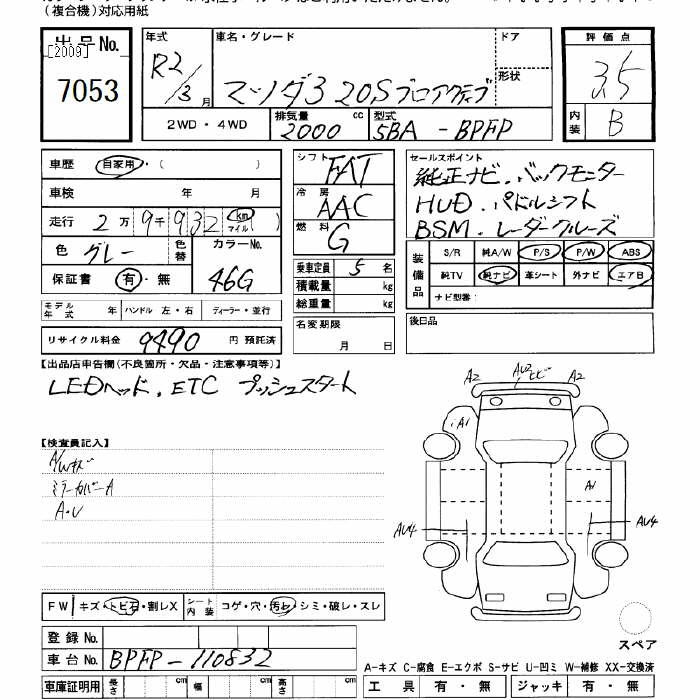 (複合機)対応用紙
出品No.
[2009]
7053
年式
R2/3月
車名・グレード
マツダ3 20Sプロアクティブ
ドア
形状
評価点
3.5
内装
B
2WD・4WD
排気量
2000 cc
型式
5BA-BPFP
車歴 自家用・( )
車検 年 月
走行 2万9千932 km マイル ( )
色 グレー
色替
カラーNo. 46G
保証書 有・無
シフト FAT
冷房 AAC
燃料 G
乗車定員 5 名
積載量 kg
総重量 kg
セールスポイント
純正ナビ.バックモニター
HUD.パドルシフト
BSM.レーダークルーズ
装備品
S/R 純A/W P/S P/W ABS
純TV 純ナビ 革シート 外ナビ エアB
ナビ型番:
モデル年式 年 ハンドル 左・右 ディーラー・並行
リサイクル料金 9490 円 預託済
名変期限
月 日
後日品
【出品店申告欄(不良箇所・欠品・注意事項等)】
LEDヘッド.ETC プッシュスタート
【検査員記入】
A/Wキズ
ミラーカバーA
A・U
A2
AU2
ヒビ
A2
A1
A1
AU4
AU4
FW キズ・トビ石・割レX
シート内装 コゲ・穴・汚レ・シミ・破レ・スレ
登録No.
車台No. BPFP-110832
車庫証明用 長さ cm 幅 cm 高さ cm
スペア
A-キズ C-腐食 E-エクボ S-サビ U-凹ミ W-補修 XX-交換済
工具 有・無 ジャッキ 有・無